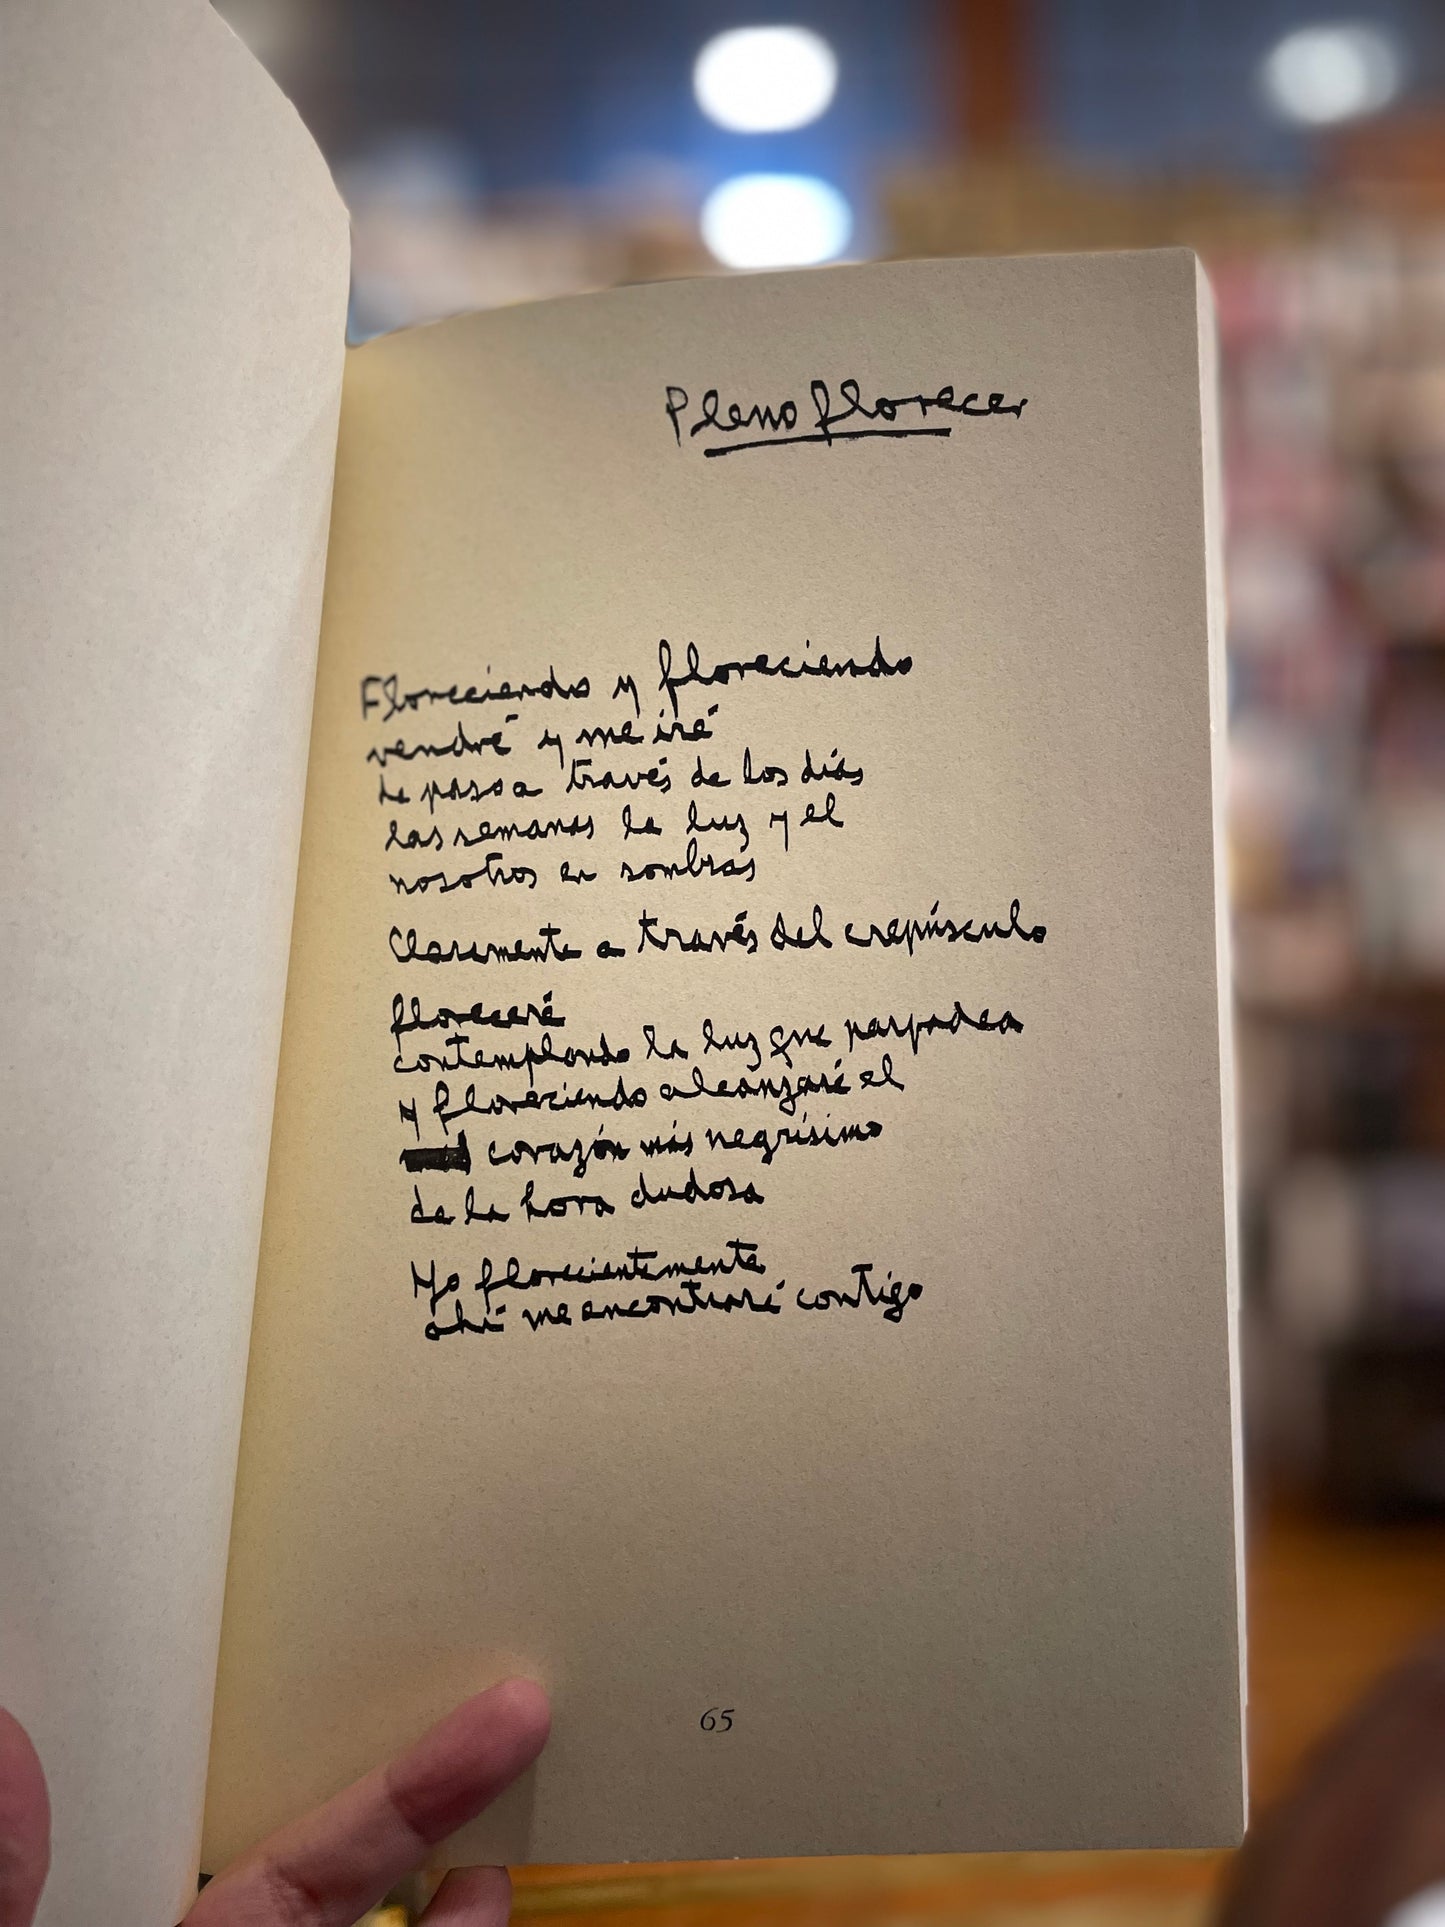 Pleno florecer
Floreciendo y floreciendo
vendré y me iré
de paso a través de los días
las semanas la luz y el
nosotros en sombras
Claramente a través del crepúsculo
floreceré
contemplando la luz que parpadea
y floreciendo alcanzaré el
corazón más negrísimo
de la hora dudosa
Yo florecientemente
ahí me encontraré contigo
65